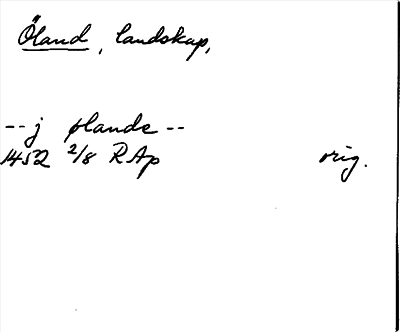 Öland, landskap,
-- j ølande --
1452 2/8 RAp orig.